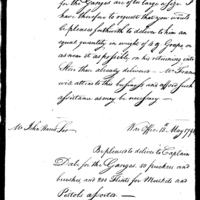 for the Ganges are of too large a size. I
have therefore to request that you would
be pleased forthwith to deliver to him an
equal quantity in weight of 4 lb Grape or
as near it as possible, on his returning into
Store those already delivered. Mr
will attend to this business and afford such
assistance as may be necessary.
Mr John Harris Sir War Office 18th May 1798
Be pleased to deliver to Captain
Dale for the Ganges. 50 prickers and
brushes, and 200 Flints for Muskets and
Pistols assorted